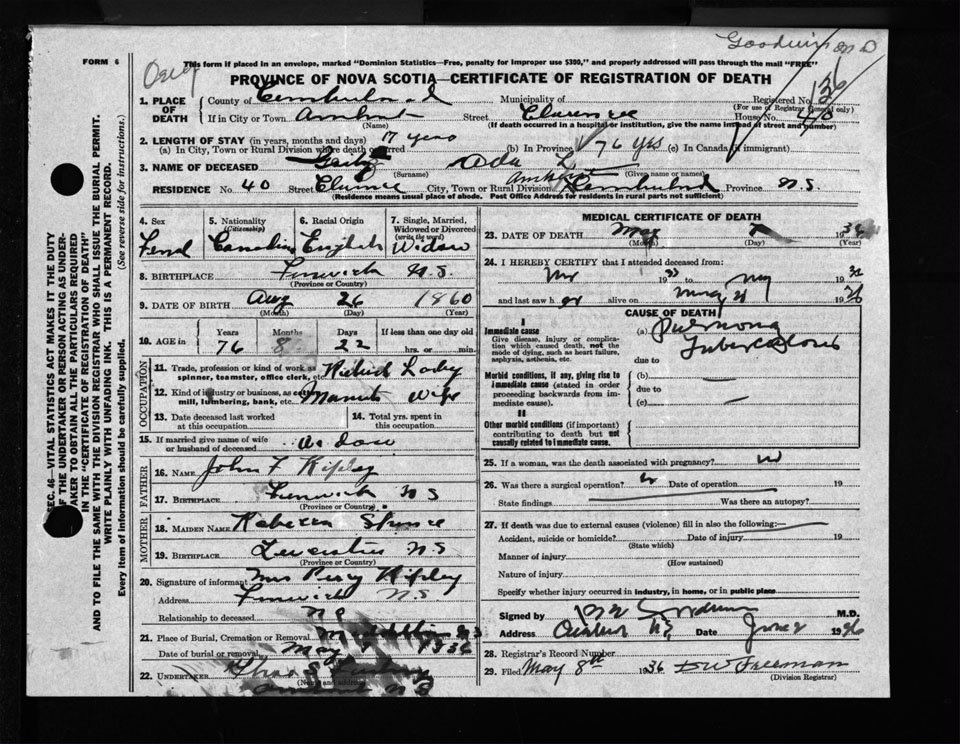 Goodwin
Orig
FORM 6
This form if placed in an envelope, marked "Dominion Statistics—Free, penalty for improper use $300," and properly addressed will pass through the mail "FREE"
PROVINCE OF NOVA SCOTIA—CERTIFICATE OF REGISTRATION OF DEATH
136
1. PLACE OF DEATH
County of Cumberland Municipality of Registered No.
(For use of Registrar General only)
If in City or Town Amherst Street Clarence House No. 40
(Name) (If death occurred in a hospital or institution, give the name instead of street and number)
2. LENGTH OF STAY (in years, months and days) 7 years
(a) In City, Town or Rural Division where death occurred (b) In Province 76 yrs (c) In Canada (if immigrant)
3. NAME OF DECEASED Ada L.
(Surname) (Given name or names)
Amherst
RESIDENCE No. 40 Street Clarence City, Town or Rural Division Cumberland Province N.S.
(Residence means usual place of abode. Post Office Address for residents in rural parts not sufficient)
SEC. 46—VITAL STATISTICS ACT MAKES IT THE DUTY
OF THE UNDERTAKER OR PERSON ACTING AS UNDER-
TAKER TO OBTAIN ALL THE PARTICULARS REQUIRED
IN THE "CERTIFICATE OF REGISTRATION OF DEATH"
AND TO FILE THE SAME WITH THE DIVISION REGISTRAR WHO SHALL ISSUE THE BURIAL PERMIT.
WRITE PLAINLY WITH UNFADING INK. THIS IS A PERMANENT RECORD.
Every item of information should be carefully supplied. (See reverse side for instructions.)
4. Sex 5. Nationality 6. Racial Origin 7. Single, Married,
(Citizenship) Widowed or Divorced
(write the word)
Canadian English Widow
8. BIRTHPLACE Fenwick N.S.
(Province or Country)
9. DATE OF BIRTH Aug 26 1860
(Month) (Day) (Year)
10. AGE in Years Months Days If less than one day old
76 8 22 hrs. or min.
OCCUPATION
11. Trade, profession or kind of work as
spinner, teamster, office clerk, etc.
12. Kind of industry or business, as cotton
mill, lumbering, bank, etc. wife
13. Date deceased last worked
at this occupation
14. Total yrs. spent in
this occupation
15. If married give name of wife
or husband of deceased
FATHER
16. NAME John F Ripley
17. BIRTHPLACE Fenwick N S
(Province or Country)
MOTHER
18. MAIDEN NAME Rebecca Spence
19. BIRTHPLACE N.S.
(Province or Country)
20. Signature of informant Mrs Percy Ripley
Address Fenwick N.S.
Relationship to deceased
21. Place of Burial, Cremation or Removal
Date of burial or removal May 1936
22. UNDERTAKER
(Name and address)
MEDICAL CERTIFICATE OF DEATH
23. DATE OF DEATH May 1936
(Month) (Day) (Year)
24. I HEREBY CERTIFY that I attended deceased from:
19 to May 19
and last saw her alive on May 19
CAUSE OF DEATH
I
Immediate cause
Give disease, injury or complica-
tion which caused death, not the
mode of dying, such as heart failure,
asphyxia, asthenia, etc.
(a) Pulmonary
Tuberculosis
due to
Morbid conditions, if any, giving rise to
immediate cause (stated in order
proceeding backwards from im-
mediate cause).
(b)
due to
(c)
II
Other morbid conditions (if important)
contributing to death but not
causally related to immediate cause.
25. If a woman, was the death associated with pregnancy?
26. Was there a surgical operation? Date of operation 19
State findings Was there an autopsy?
27. If death was due to external causes (violence) fill in also the following:—
Accident, suicide or homicide? Date of injury 19
(State which)
Manner of injury
(How sustained)
Nature of injury
Specify whether injury occurred in industry, in home, or in public place
Signed by M.D.
Address Amherst N.S. Date June 2 1936
28. Registrar's Record Number
29. Filed May 8th 1936 D W Freeman
(Division Registrar)